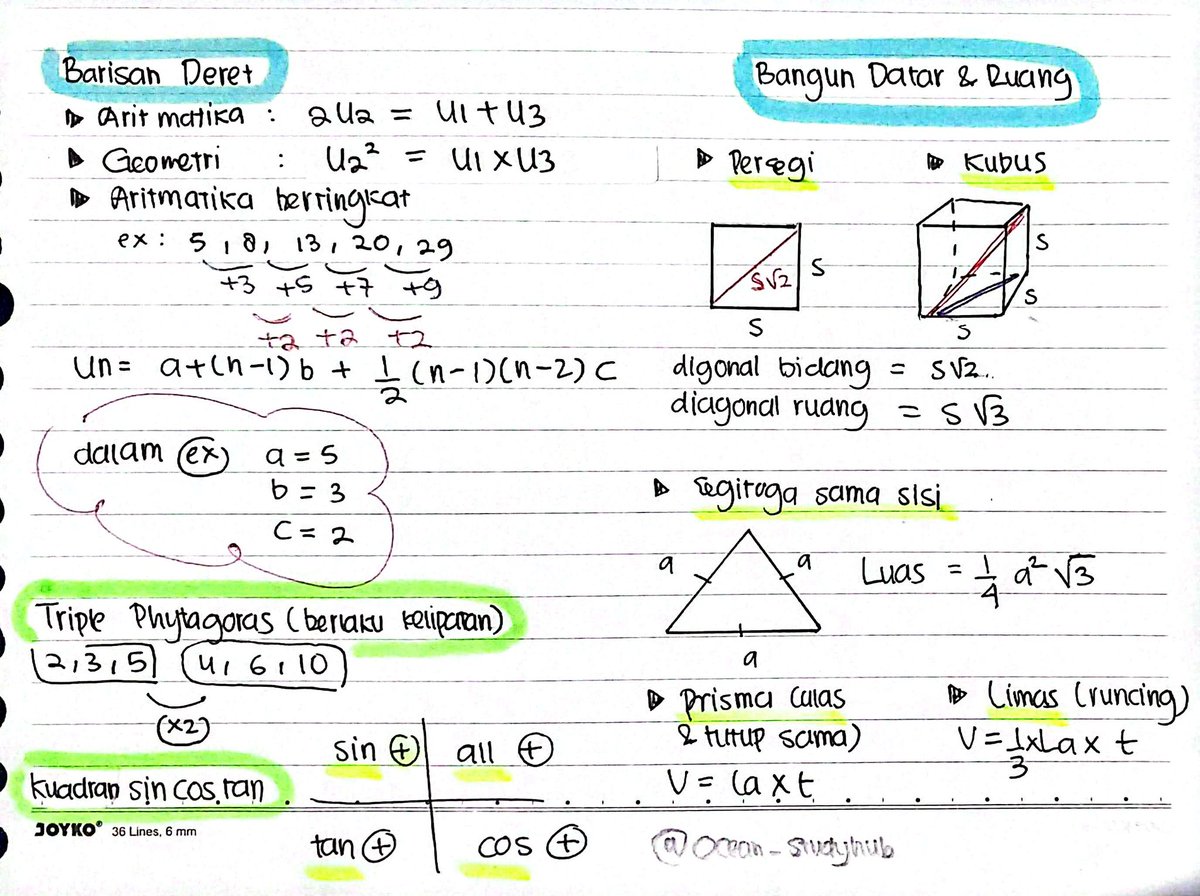 Barisan Deret
Aritmatika : 2U2 = U1 + U3
Geometri : U2² = U1 x U3
Aritmatika bertingkat
ex : 5 , 8, 13, 20, 29
+3 +5 +7 +9
+2 +2 +2
Un = a+(n-1)b + 1/2 (n-1)(n-2) c
dalam ex a = 5
b = 3
c = 2
Triple Phytagoras (berlaku kelipatan)
2,3,5 4, 6, 10
(x2)
Kuadran sin cos tan
sin + all +
tan + cos +
JOYKO® 36 Lines, 6 mm
Bangun Datar & Ruang
Persegi Kubus
s√2 s s
s s
s
digonal bidang = s√2..
diagonal ruang = s√3
segitiga sama sisi
a a Luas = 1/4 a² √3
a
Prisma (alas Limas (runcing)
& tutup sama) V = 1/3 x La x t
V = La x t
@ocean_studyhub